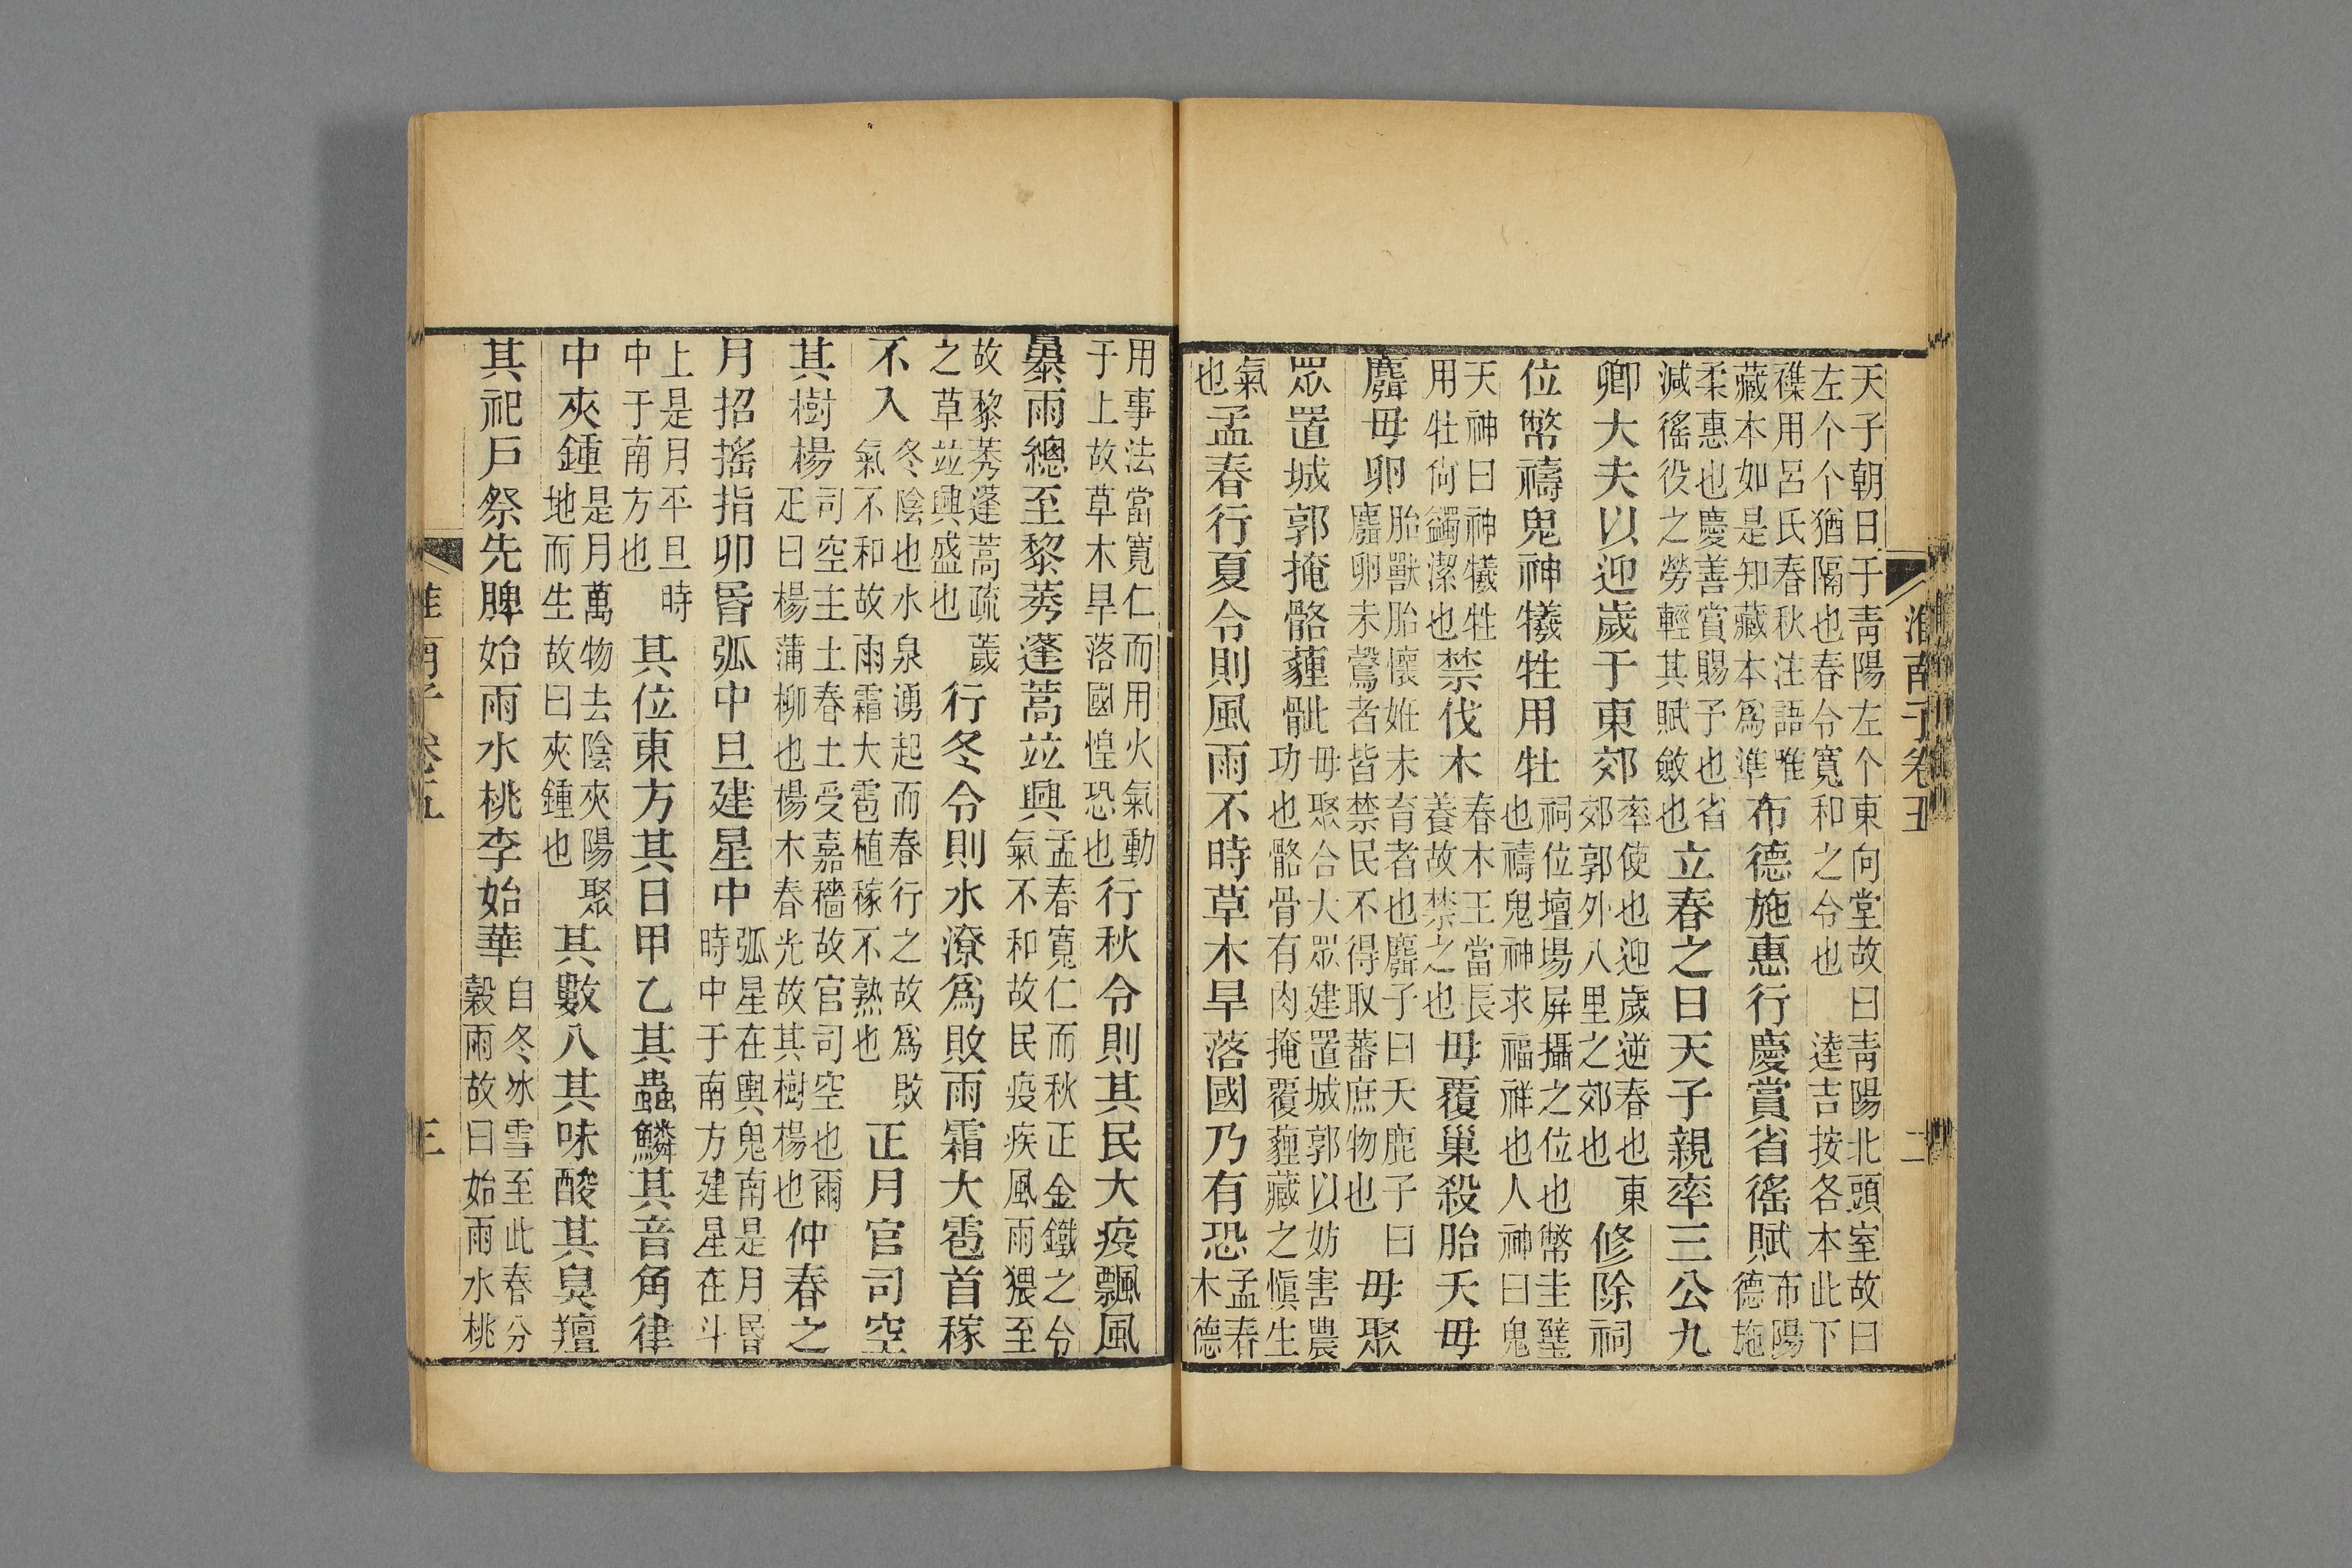 淮南子卷五　二
天子朝日于靑陽左个東向堂故曰靑陽北頭室故曰
左个个猶隔也春令寬和之令也　逵吉按各本此下
襍用呂氏春秋注語唯藏本如是知藏本爲準布德施惠行慶賞省徭賦布陽德施
柔惠也慶善賞賜予也省減徭役之勞輕其賦斂也立春之日天子親率三公九
卿大夫以迎歲于東郊率使也迎歲逆春也東郊郭外八里之郊也修除祠
位幣禱鬼神犧牲用牡祠位壇場屏攝之位也幣圭璧也禱鬼神求福祥也人神曰鬼
天神曰神犧牲用牡尙蠲潔也禁伐木春木王當長養故禁之也毋覆巢殺胎夭毋
麛毋卵胎獸胎懷姙未育者也麛子曰夭鹿子曰麛卵未鷇者皆禁民不得取蕃庶物也毋聚
眾置城郭掩骼薶骴毋聚合大眾建置城郭以妨害農功也骼骨有肉掩覆薶藏之愼生
氣也孟春行夏令則風雨不時草木旱落國乃有恐孟春木德
用事法當寬仁而用火氣動于上故草木旱落國惶恐也行秋令則其民大疫飄風
暴雨總至黎莠蓬蒿竝興孟春寬仁而秋正金鐵之令氣不和故民疫疾風雨猥至
故黎莠蓬蒿疏薉之草竝興盛也行冬令則水潦爲敗雨霜大雹首稼
不入冬陰也水泉湧起而春行之故爲敗氣不和故雨霜大雹植稼不熟也正月官司空
其樹楊司空主土春土受嘉穡故官司空也爾疋曰楊蒲柳也楊木春光故其樹楊也仲春之
月招搖指卯昏弧中旦建星中弧星在輿鬼南是月昏時中于南方建星在斗
上是月平旦時中于南方也其位東方其日甲乙其蟲鱗其音角律
中夾鍾是月萬物去陰夾陽聚地而生故曰夾鍾也其數八其味酸其臭羶
其祀戶祭先脾始雨水桃李始華自冬冰雪至此春分穀雨故曰始雨水桃
淮南子卷五　三